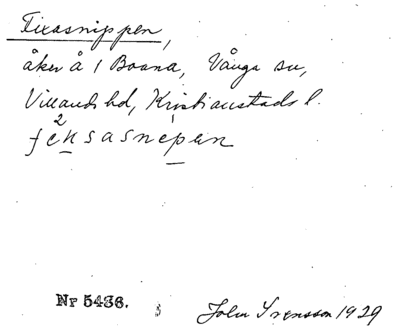 Fixasnippen,
åker å 1 Boana, Vånga sn,
Villands hd, Kristianstads l.
Nr 5436.
John Svensson 1929